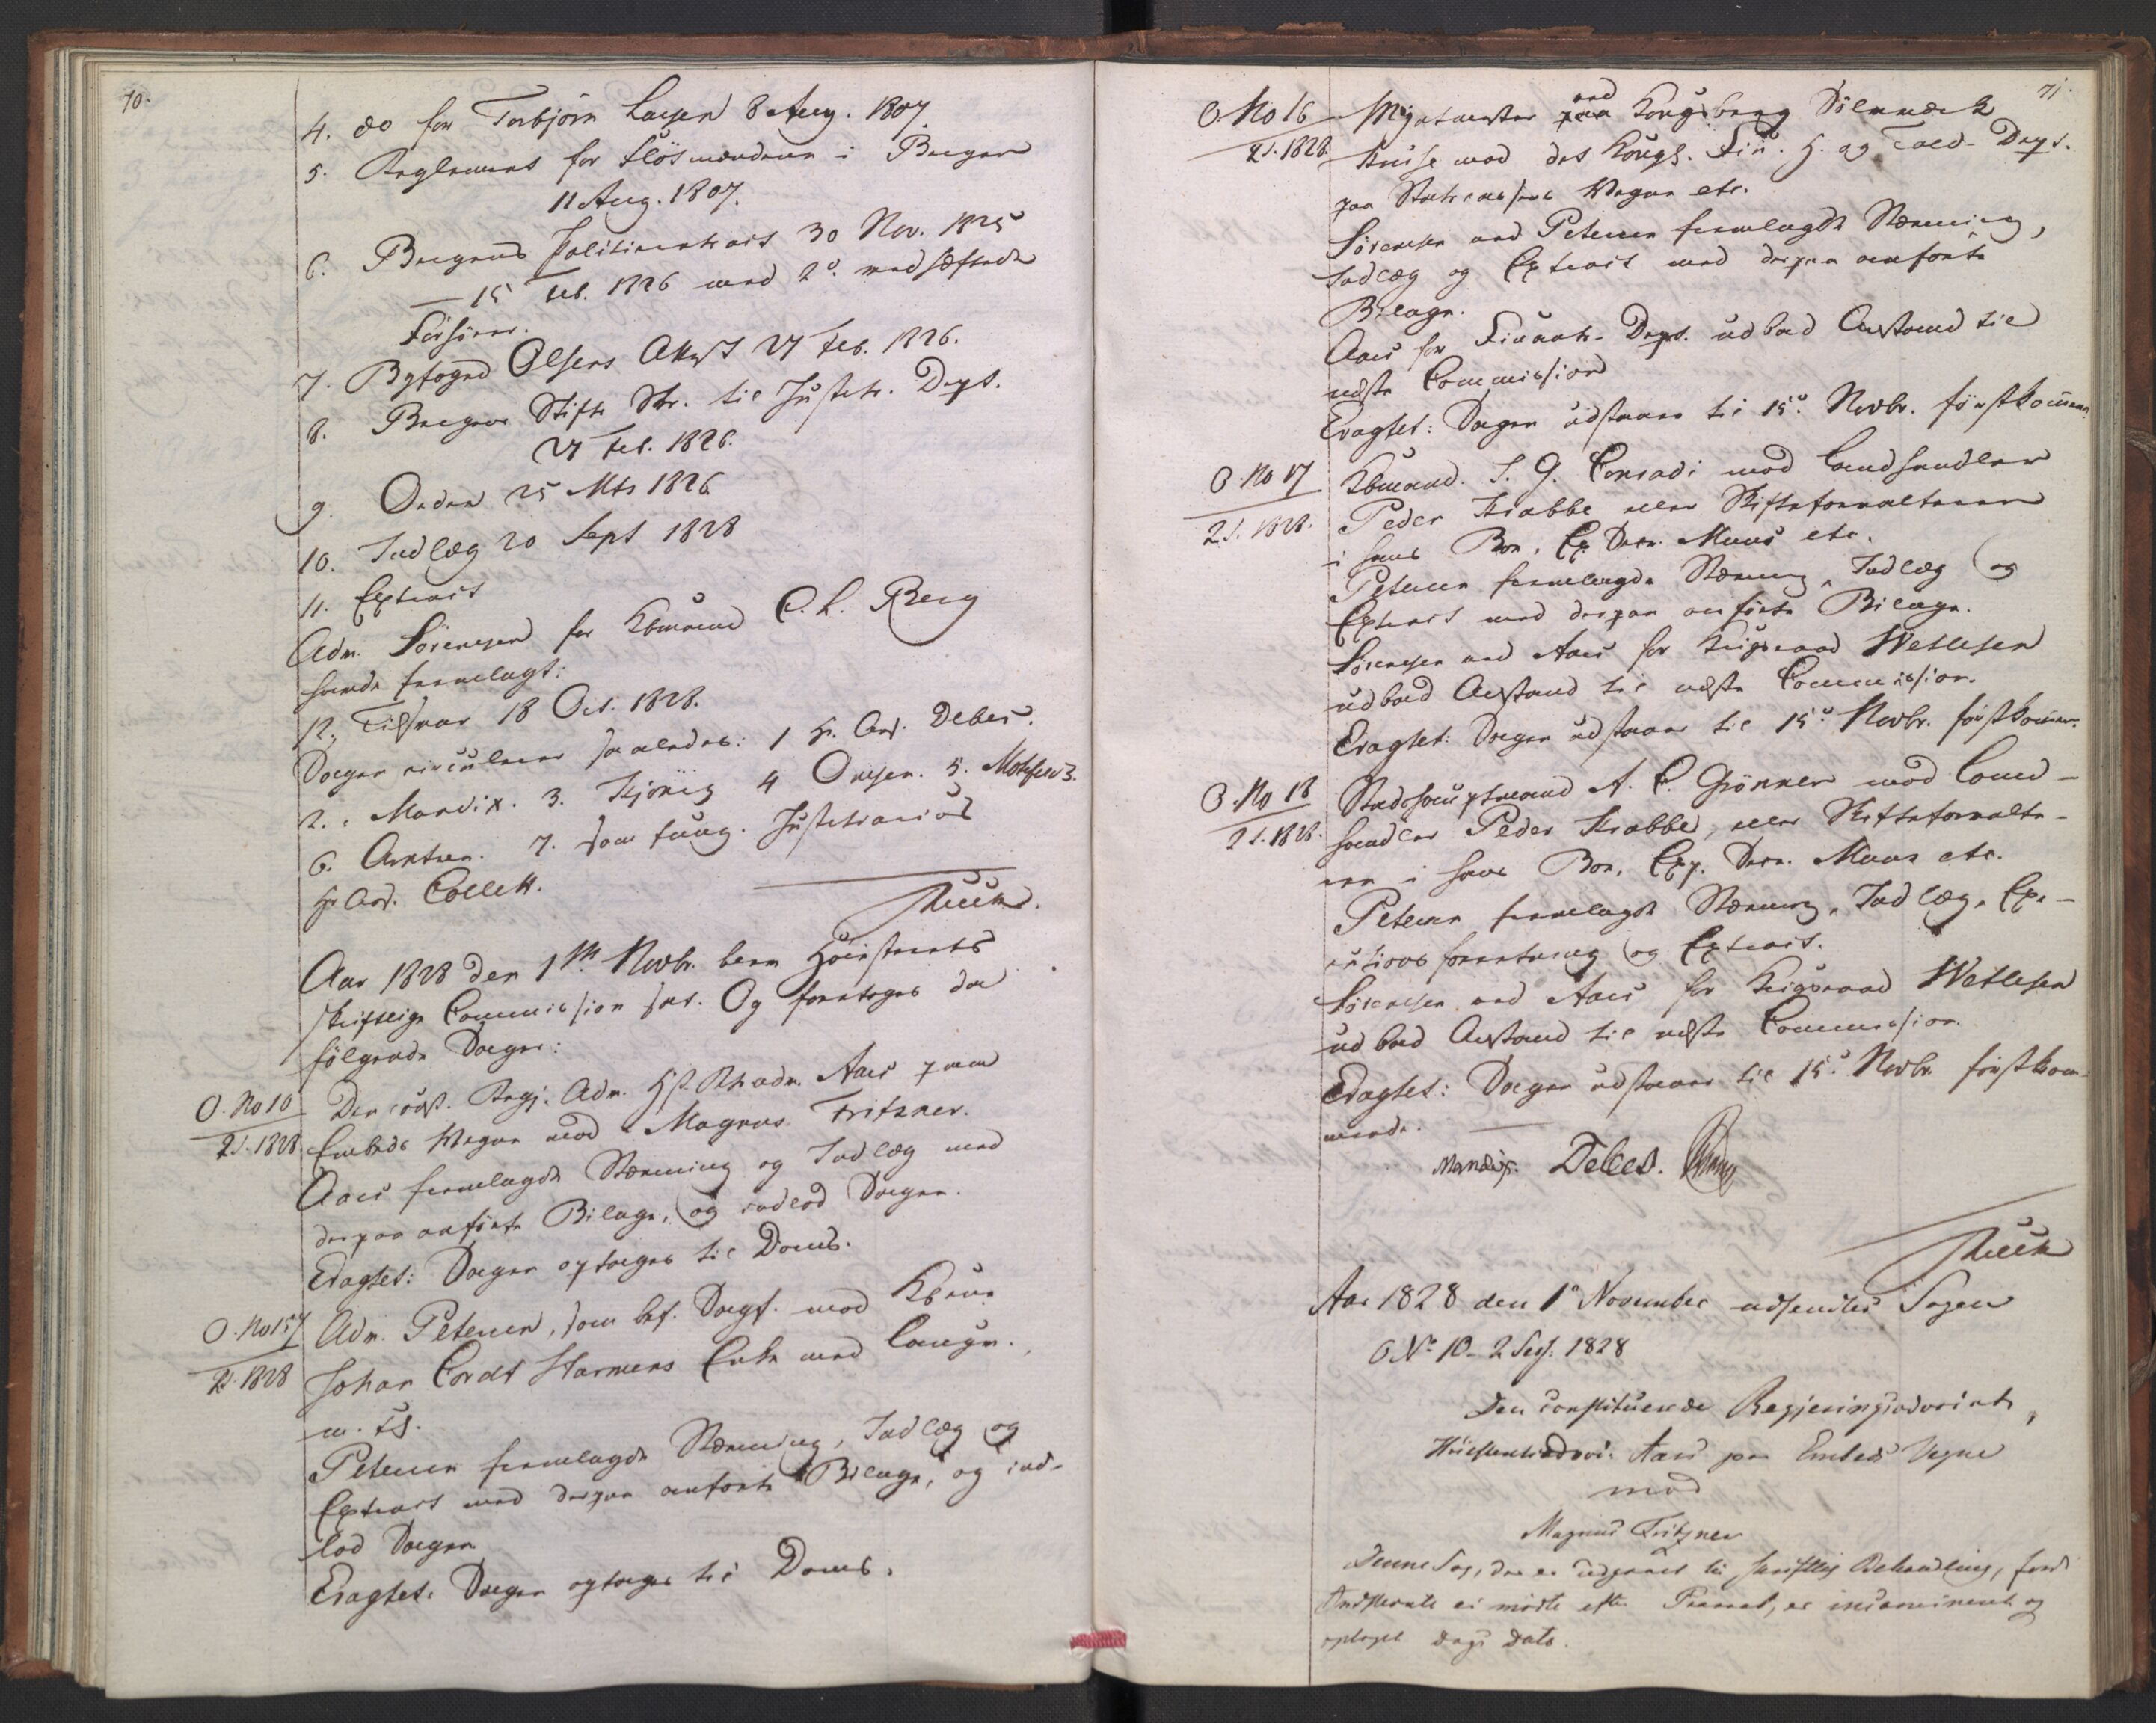 70.
4. do for Torbjörn Larsen 8 Aug. 1807.
5. Reglement for Flösmændene i Bergen
11 Aug. 1807.
6. Bergens Politieextract 30 Nov. 1825
— 15 Feb. 1826 med 2de vedhæftede
7. Byfoged Olsens Attest 27 Feb. 1826.
8. Bergens Stifts Skr. til Justits. Dept.
27 Feb. 1826.
9. Orden 25 Mts 1826
10. Indlæg 20 Sept 1828
11. Extract
Adv. Sörensen for Kbmand C. L. Berg
havde fremlagt:
12. Tilsvar 18 Oct. 1828.
Sagen circulerer saaledes: 1 Hr. Ass. Debes.
2. - Mandix. 3. Hjönig 4 Omsen. 5. Motzfeldt.
6. Arntzen. 7. som fung. Justitiarius
Hr Ass. Collett.
Aar 1828 den 1ste Novbr. blev Höiesterets
skriftlige Commission sat. Og foretoges da
fölgende Sager:
O. No 10
2 S. 1828
Den const. Regj. Adv. HstRtsadv. Aars paa
Embeds Vegne mod Magnus Fritzner.
Aars fremlagde Stævning og Indlæg med
derpaa anförte Bilage, og indlod Sagen.
Eragtet: Sagen optages til Doms.
O. No 157
2 S. 1828
Adv. Petersen, som bef. Sagf. mod Kbmd
Johan Cordt Harmens Enke med Laugv.
m. fl.
Petersen fremlagde Stævning, Indlæg og
Extract med derpaa anförte Bilage, og ind-
lod Sagen
Eragtet: Sagen optages til Doms.
71.
O. No 16
2 S. 1828.
Myntmester ved Kongsberg Sölvværk
Kruse mod det Kongl. Fin. H. og Told-Dept.
paa Statscassens Vegne etc.
Sörensen ved Petersen fremlagde Stævning,
Indlæg og Extract med derpaa anförte
Bilage.
Aars for Finants-Dept. udbad Anstand til
næste Commission
Eragtet: Sagen udstaaer til 15de Novbr. förstkommen.
O. No 17
2 S. 1828.
Kbmand. J. G. Conradi mod Landhandler
Peder Krabbe eller Skifteforvalteren
i hans Boe, Exp. Secr. Maus etc.
Petersen fremlagde Stævning, Indlæg og
Extract med derpaa anförte Bilage.
Sörensen ved Aars for Krigsraad Wetlesen
udbad Anstand til næste Commission.
Eragtet: Sagen udstaaer til 15de Novbr. förstkommen.
O. No 18
2 S. 1828.
Stadshauptmand A. C. Grönner mod Land-
handler Peder Krabbe, eller Skifteforvalte-
ren i hans Boe, Exp. Secr. Maus etc.
Petersen fremlagde Stævning, Indlæg, Exe-
cutions forretning og Extract.
Sörensen ved Aars for Krigsraad Wetlesen
udbad Anstand til næste Commission.
Eragtet: Sagen udstaaer til 15de Novbr. förstkom-
mende.
Mandix. Debes.
Aar 1828 den 1ste November udsendtes Sagen
O No 10 - 2 Sess. 1828
Den constituerede Regjeringsadvocat,
Höiesteretsadvoc. Aars paa Embeds Vegne
mod
Magnus Fritzner
Denne Sag, der er udgaaet til skriftlig Behandling, fordi
Indstevnte ei mödte efter Paaraab, er incamineret og
optaget Dags Dato.